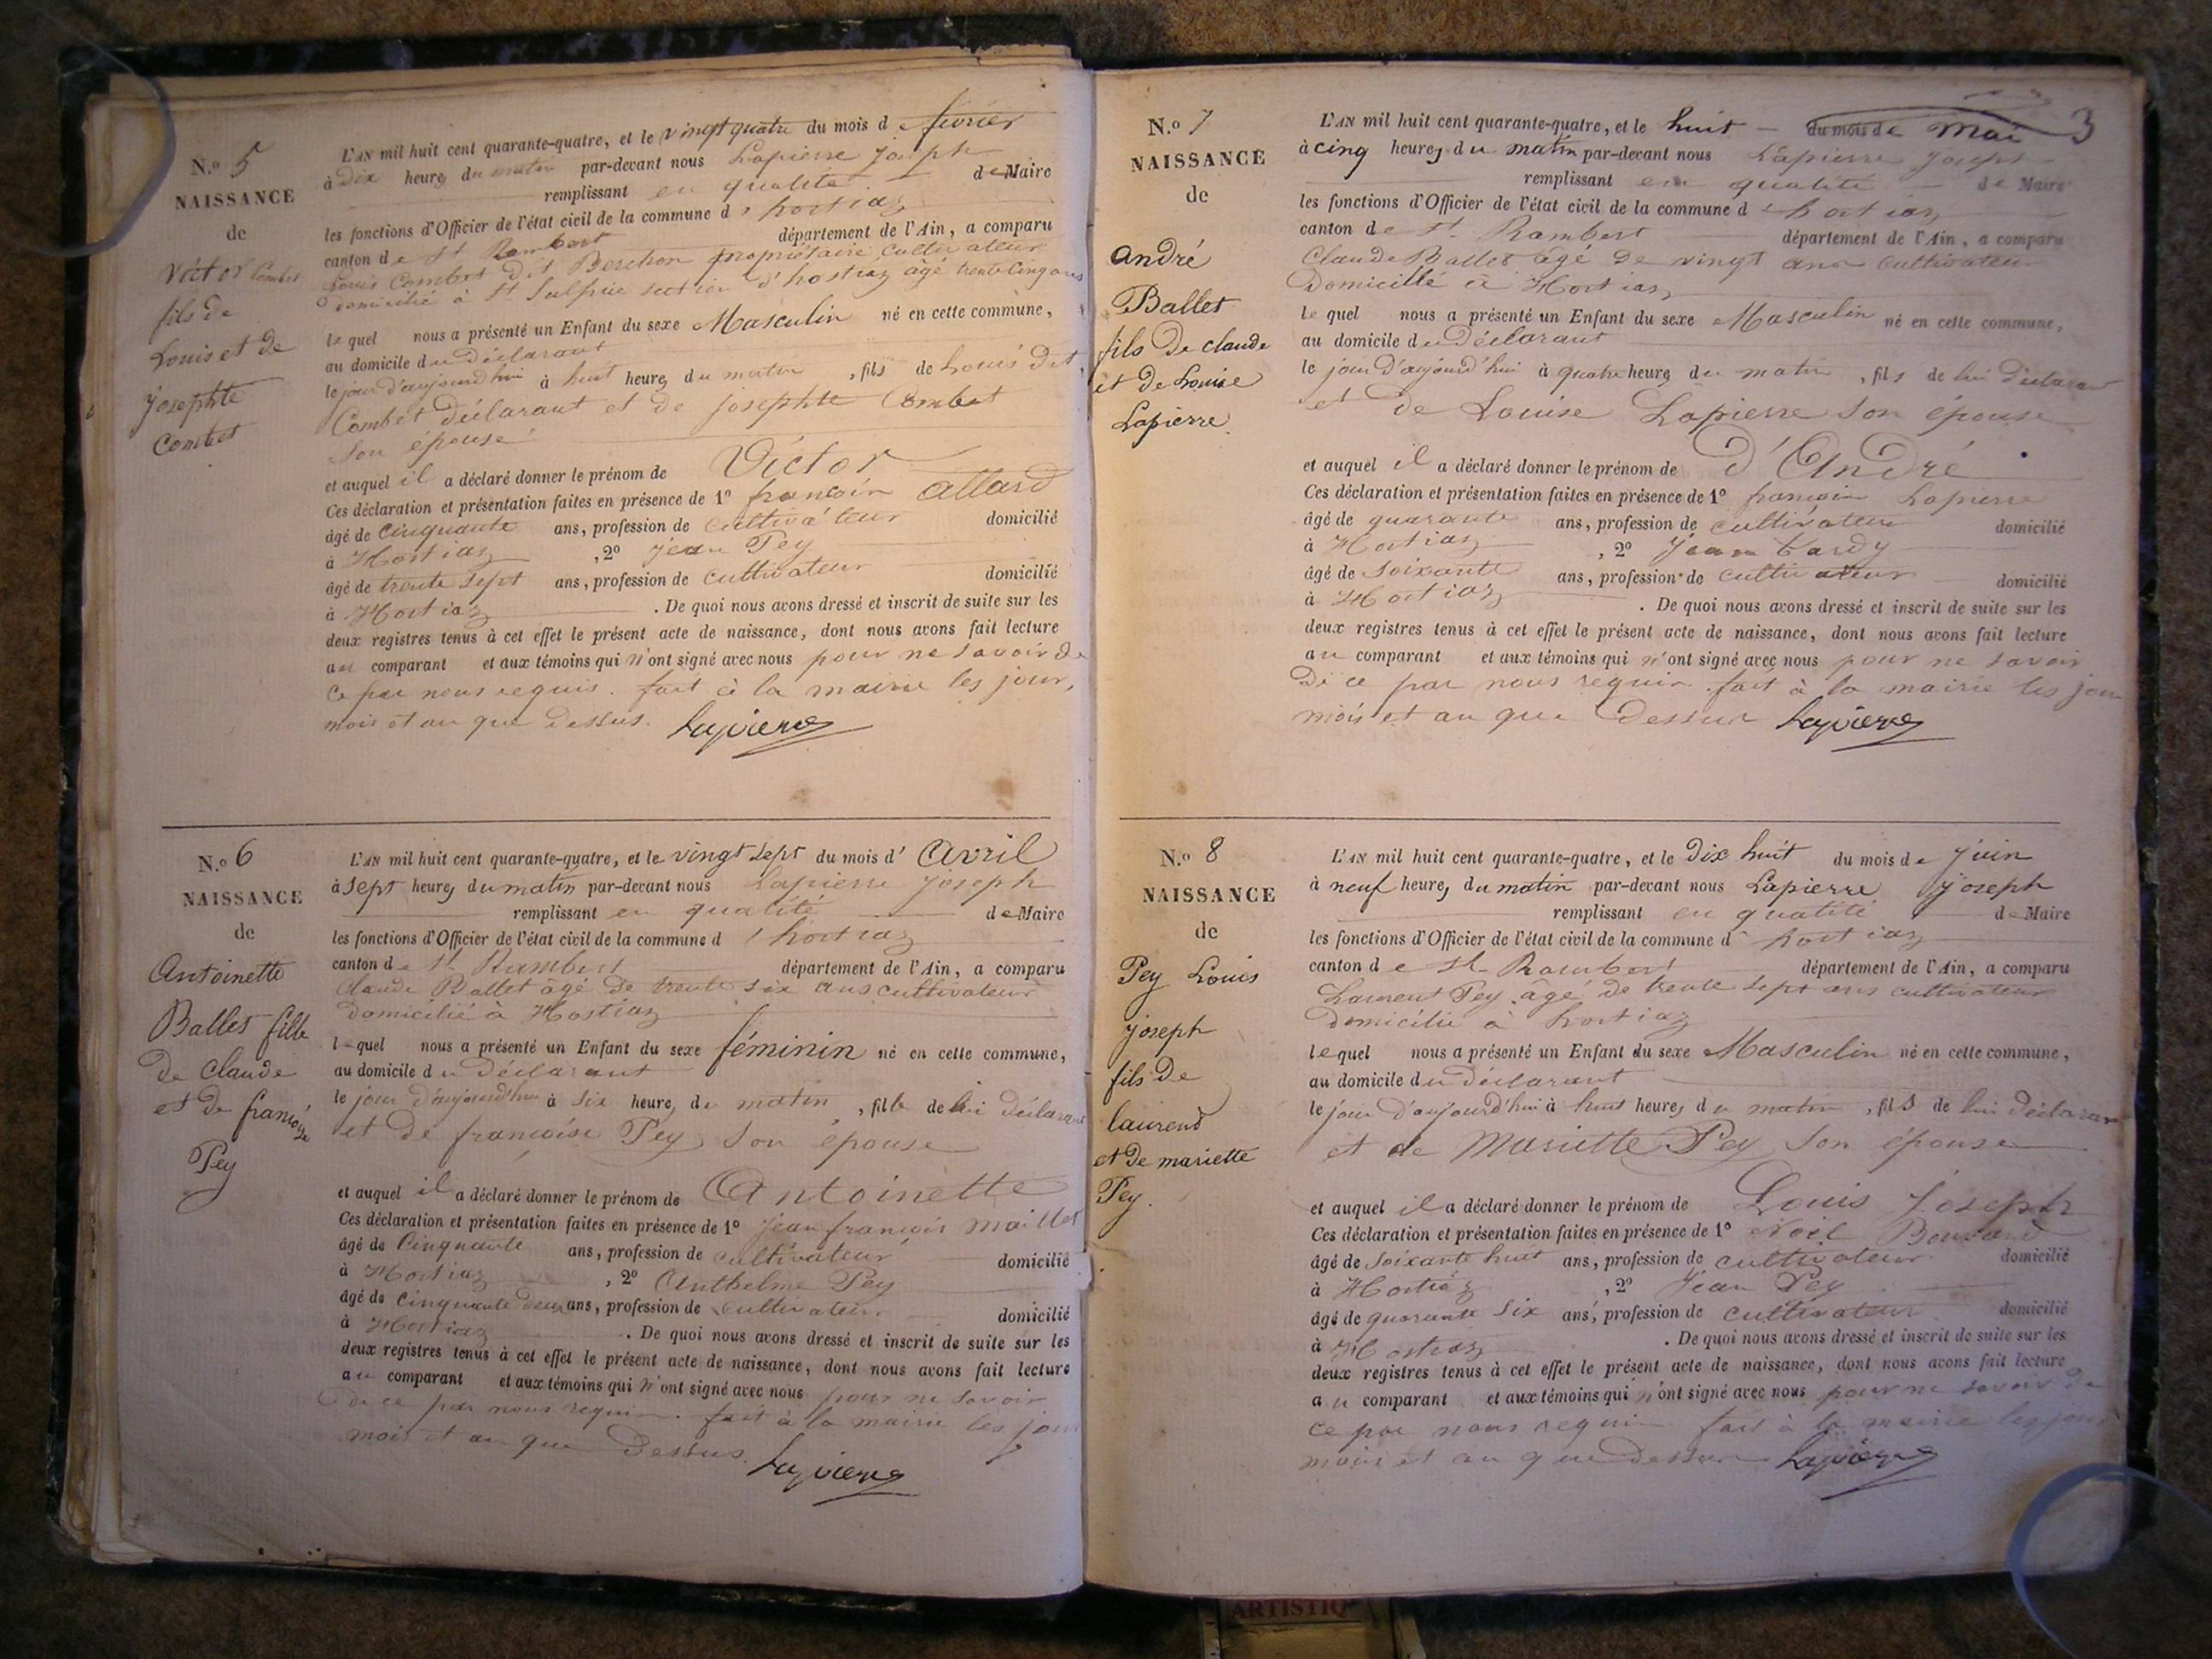 N.o 5
NAISSANCE
de
Victor Combet
fils de
Louis et de
josephte
Combet
L'AN mil huit cent quarante-quatre, et le vingt quatre du mois de février
à dix heures du matin par-devant nous Lapierre joseph
remplissant en qualité de Maire
les fonctions d'Officier de l'état civil de la commune d'hostiaz
canton de St Rambert département de l'Ain, a comparu
Louis Combet dit Berchon propriétaire cultivateur
domicilié à St Sulpice section d'hostiaz agé trente cinq ans
lequel nous a présenté un Enfant du sexe Masculin né en cette commune,
au domicile du déclarant
le jour d'aujourd'hui à huit heures du matin, fils de Louis dit
Combet déclarant et de josephte Combet
son épouse
et auquel il a déclaré donner le prénom de Victor
Ces déclaration et présentation faites en présence de 1º françois allard
âgé de cinquante ans, profession de cultivateur domicilié
à Hostiaz, 2º jean Pey
âgé de trente sept ans, profession de cultivateur domicilié
à Hostiaz. De quoi nous avons dressé et inscrit de suite sur les
deux registres tenus à cet effet le présent acte de naissance, dont nous avons fait lecture
au comparant et aux témoins qui n'ont signé avec nous pour ne savoir de
ce par nous requis. fait à la mairie les jour,
mois et an que dessus. Lapierre
N.o 6
NAISSANCE
de
Antoinette
Ballet fille
de Claude
et de françoise
Pey
L'AN mil huit cent quarante-quatre, et le vingt sept du mois d'avril
à sept heures du matin par-devant nous Lapierre joseph
remplissant en qualité de Maire
les fonctions d'Officier de l'état civil de la commune d'hostiaz
canton de St Rambert département de l'Ain, a comparu
Claude Ballet âgé de trente six ans cultivateur
domicilié à Hostiaz
lequel nous a présenté un Enfant du sexe féminin né en cette commune,
au domicile du déclarant
le jour d'aujourd'hui à six heures du matin, fille de lui déclarant
et de françoise Pey son épouse
et auquel il a déclaré donner le prénom de Antoinette
Ces déclaration et présentation faites en présence de 1º jean françois maillet
âgé de cinquante ans, profession de cultivateur domicilié
à Hostiaz, 2º Anthelme Pey
âgé de cinquante deux ans, profession de cultivateur domicilié
à Hostiaz. De quoi nous avons dressé et inscrit de suite sur les
deux registres tenus à cet effet le présent acte de naissance, dont nous avons fait lecture
au comparant et aux témoins qui n'ont signé avec nous pour ne savoir
de ce par nous requis. fait à la mairie les jour
mois et an que dessus. Lapierre
3
N.o 7
NAISSANCE
de
andré
Ballet
fils de claude
et de Louise
Lapierre
L'AN mil huit cent quarante-quatre, et le huit du mois de mai
à cinq heures du matin par-devant nous Lapierre joseph
remplissant en qualité de Maire
les fonctions d'Officier de l'état civil de la commune d'hostiaz
canton de St Rambert département de l'Ain, a comparu
Claude Ballet âgé de vingt ans cultivateur
Domicillé à Hostiaz
le quel nous a présenté un Enfant du sexe Masculin né en cette commune,
au domicile du déclarant
le jour d'aujourd'hui à quatre heures du matin, fils de lui déclarant
et de Louise Lapierre son épouse
et auquel il a déclaré donner le prénom de d'André
Ces déclaration et présentation faites en présence de 1º françois Lapierre
âgé de quarante ans, profession de cultivateur domicilié
à Hostiaz, 2º jean tardy
âgé de soixante ans, profession de cultivateur domicilié
à Hostiaz. De quoi nous avons dressé et inscrit de suite sur les
deux registres tenus à cet effet le présent acte de naissance, dont nous avons fait lecture
au comparant et aux témoins qui n'ont signé avec nous pour ne savoir
de ce par nous requis. fait à la mairie les jour
mois et an que dessus Lapierre
N.o 8
NAISSANCE
de
Pey Louis
joseph
fils de
laurend
et de mariette
Pey.
L'AN mil huit cent quarante-quatre, et le dix huit du mois de juin
à neuf heures du matin par-devant nous Lapierre joseph
remplissant en qualité de Maire
les fonctions d'Officier de l'état civil de la commune d'hostiaz
canton de St Rambert département de l'Ain, a comparu
Laurent Pey âgé de trente sept ans cultivateur
domicilié à hostiaz
lequel nous a présenté un Enfant du sexe Masculin né en cette commune,
au domicile du déclarant
le jour d'aujourd'hui à huit heures du matin, fils de lui déclarant
et de Mariette Pey son épouse
et auquel il a déclaré donner le prénom de Louis joseph
Ces déclaration et présentation faites en présence de 1º Noël Bonnard
âgé de soixante huit ans, profession de cultivateur domicilié
à Hostiaz, 2º Jean Pey
âgé de quarante six ans, profession de cultivateur domicilié
à Hostiaz. De quoi nous avons dressé et inscrit de suite sur les
deux registres tenus à cet effet le présent acte de naissance, dont nous avons fait lecture
au comparant et aux témoins qui n'ont signé avec nous pour ne savoir de
ce par nous requis fait à la mairie les jour
mois et an que dessus Lapierre
ARTISTIQ